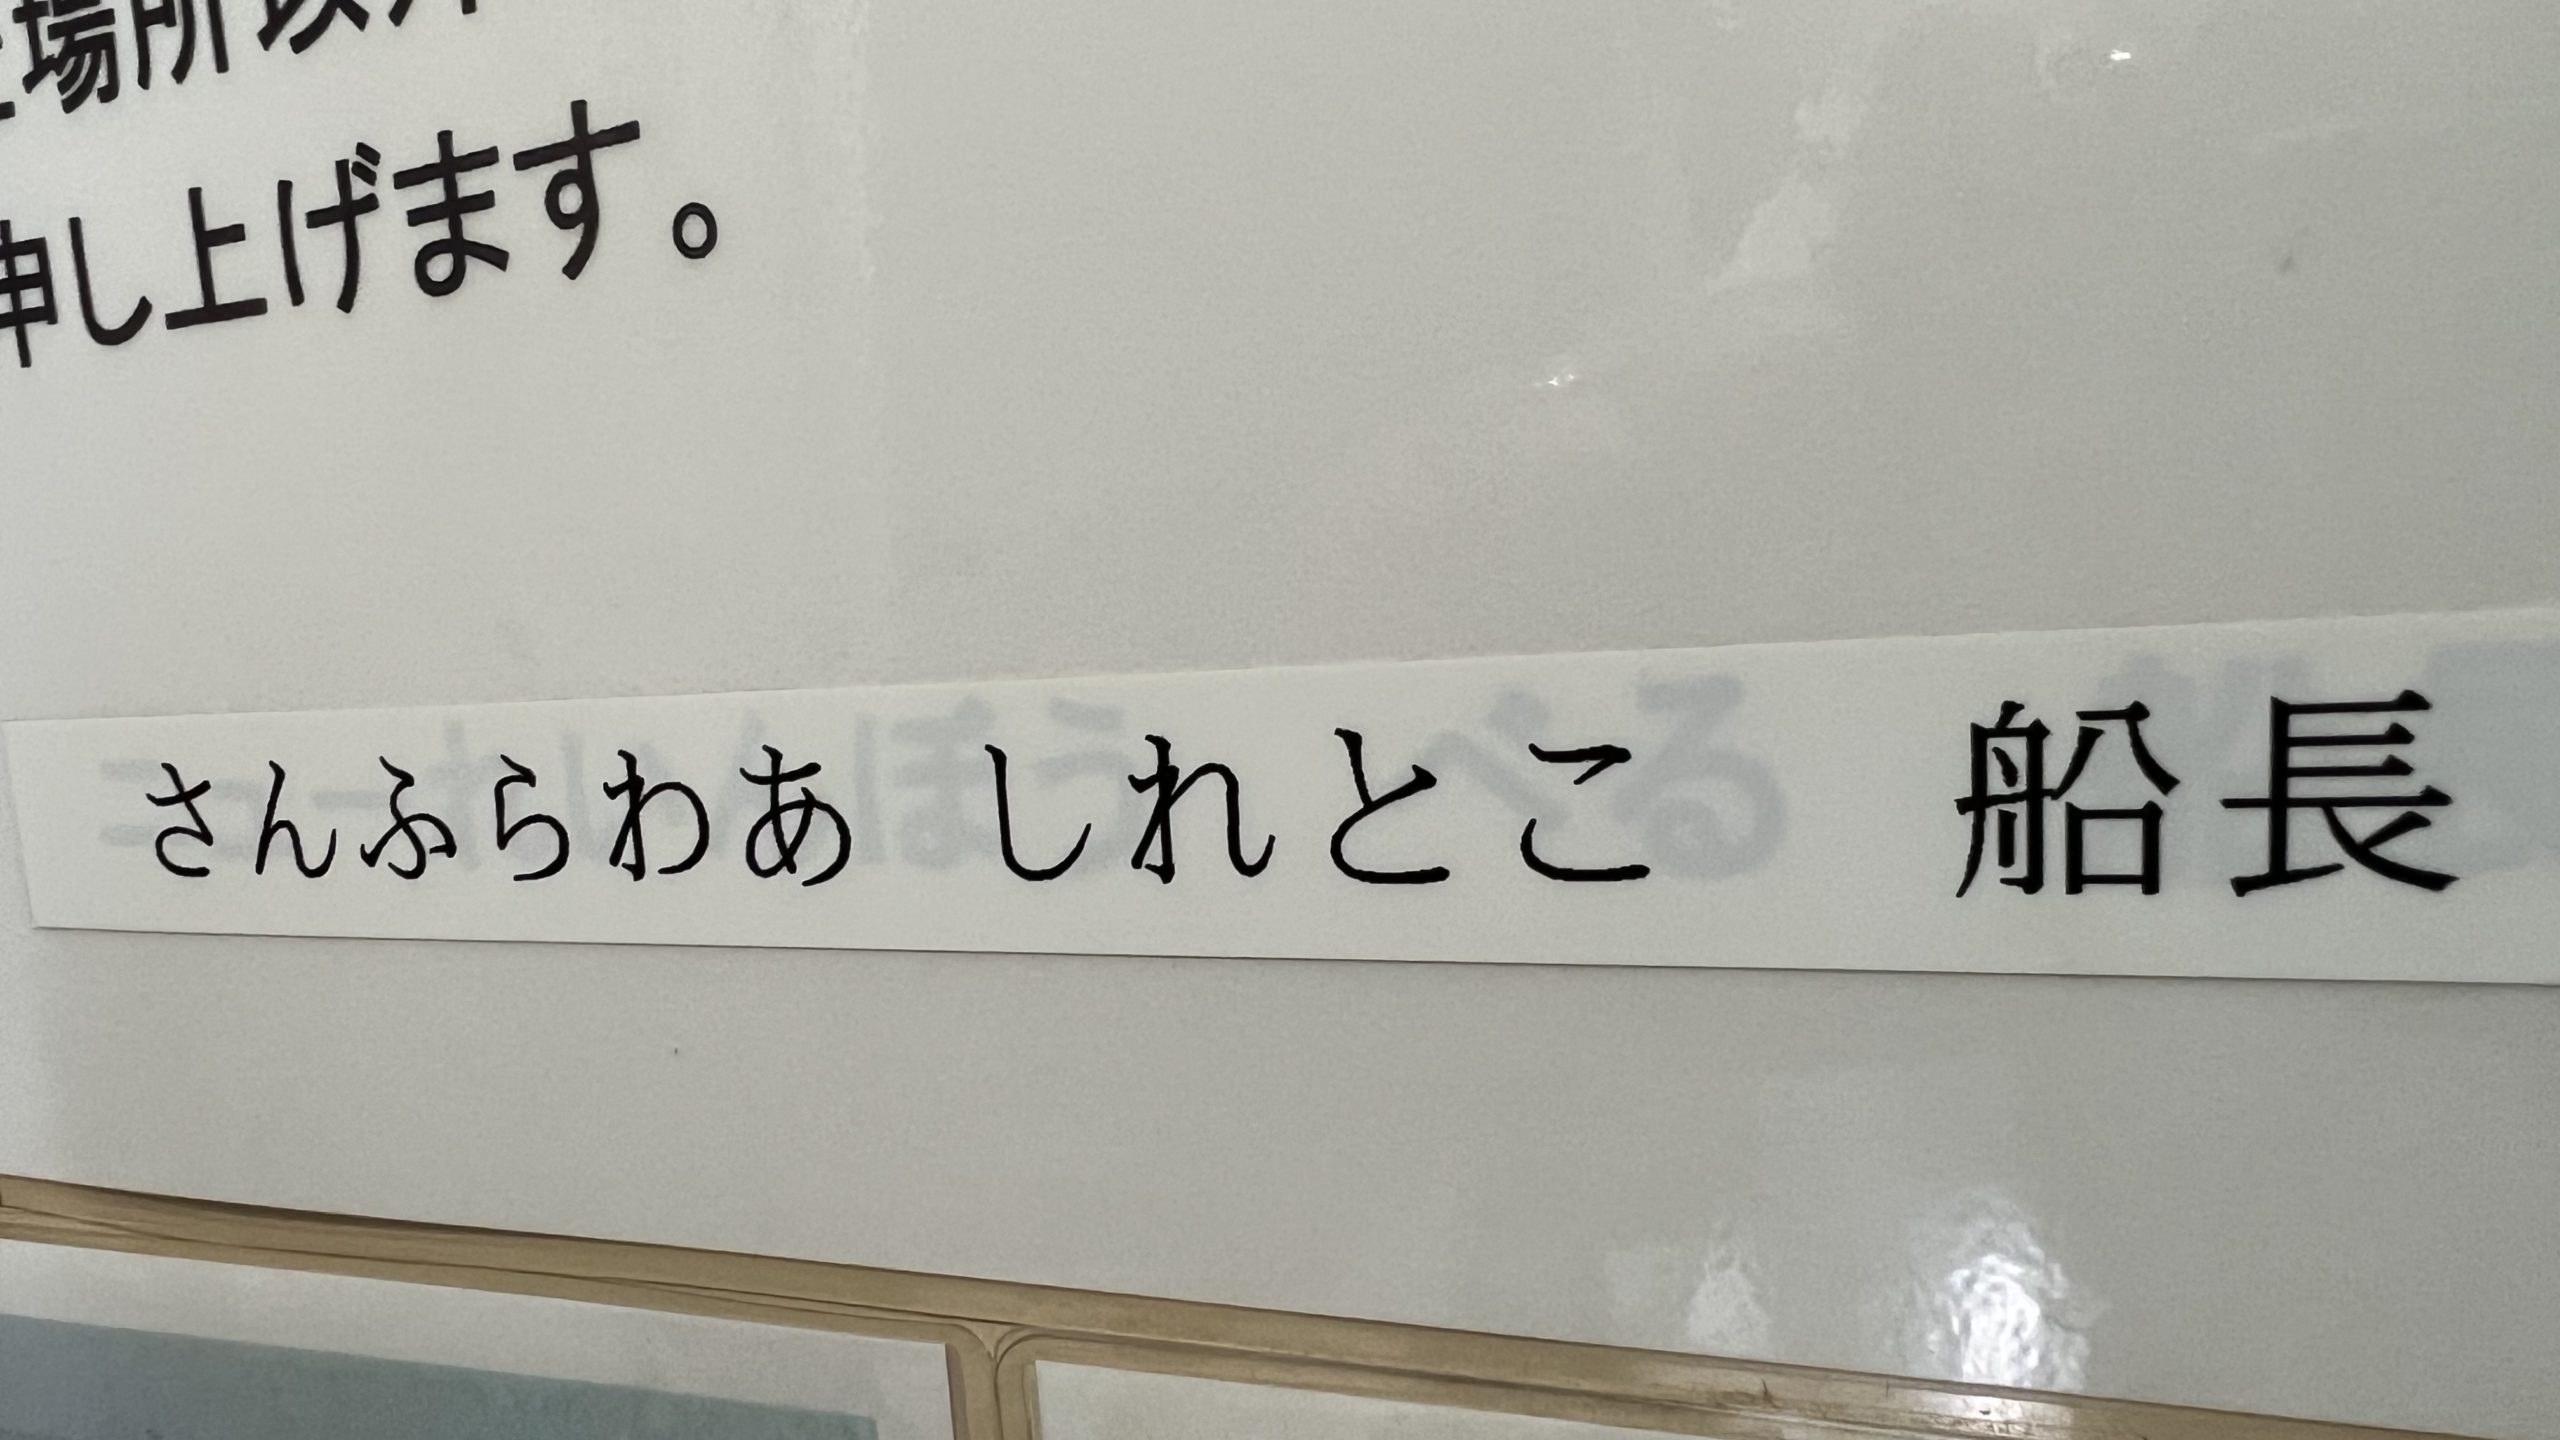 場所以外
申し上げます。
さんふらわあ しれとこ 船長